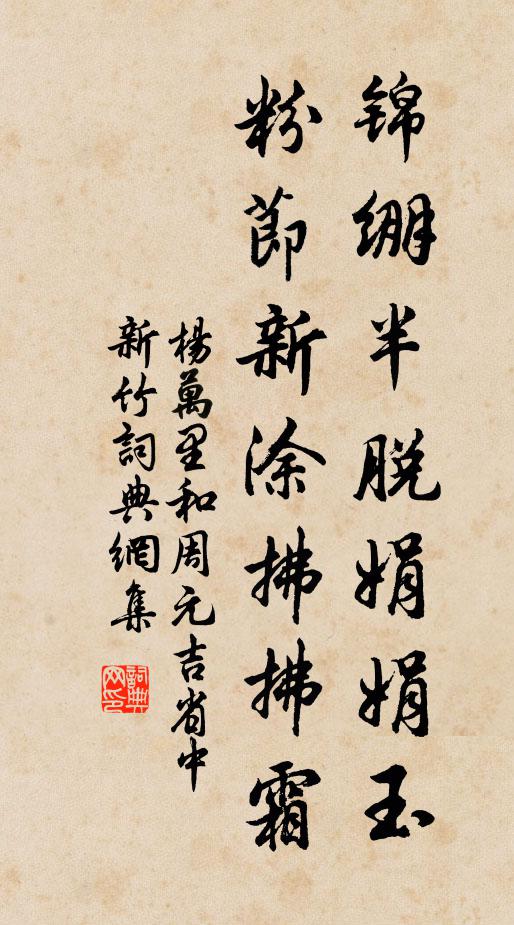 锦绷半脱娟娟玉
粉節新涂拂拂霜
楊萬里和周元吉省中
新竹詞典網集
詞典网印